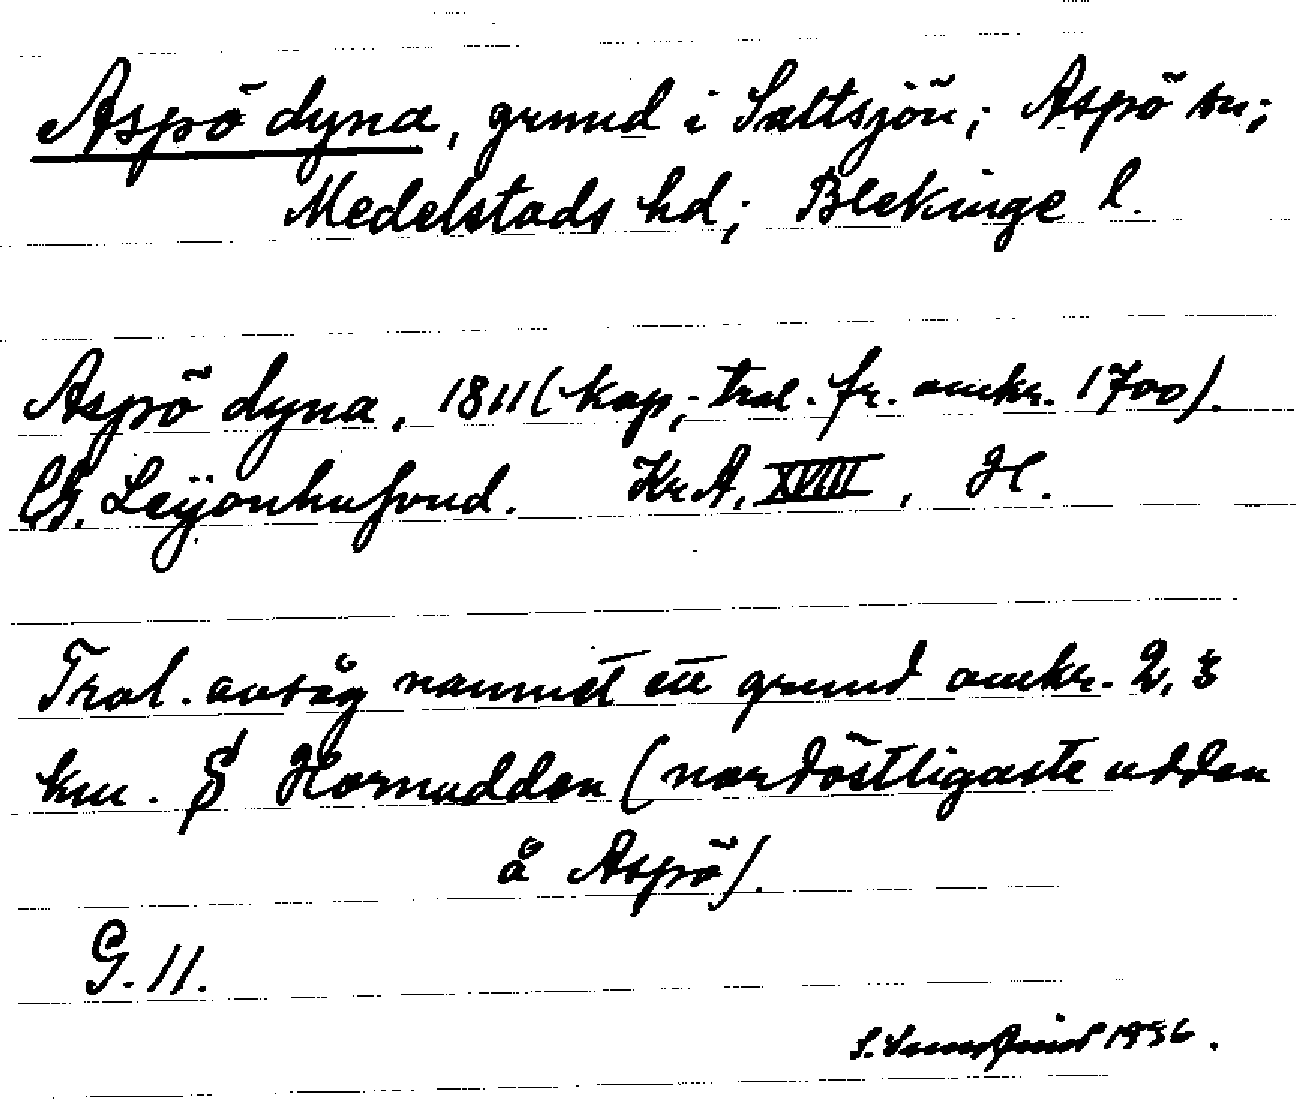 Aspö dyna, grund i Saltsjön; Aspö sn;
Medelstads hd; Blekinge l.
Aspö dyna, 1811 (kop, trol. fr. omkr. 1700).
CG. Leijonhufvud. Kr.A. XVIII, H.
Trol. avsåg namnet ett grund omkr. 2,5
km. Hornudden (nordöstligaste udden
å Aspö).
G. 11.
S. 1956.